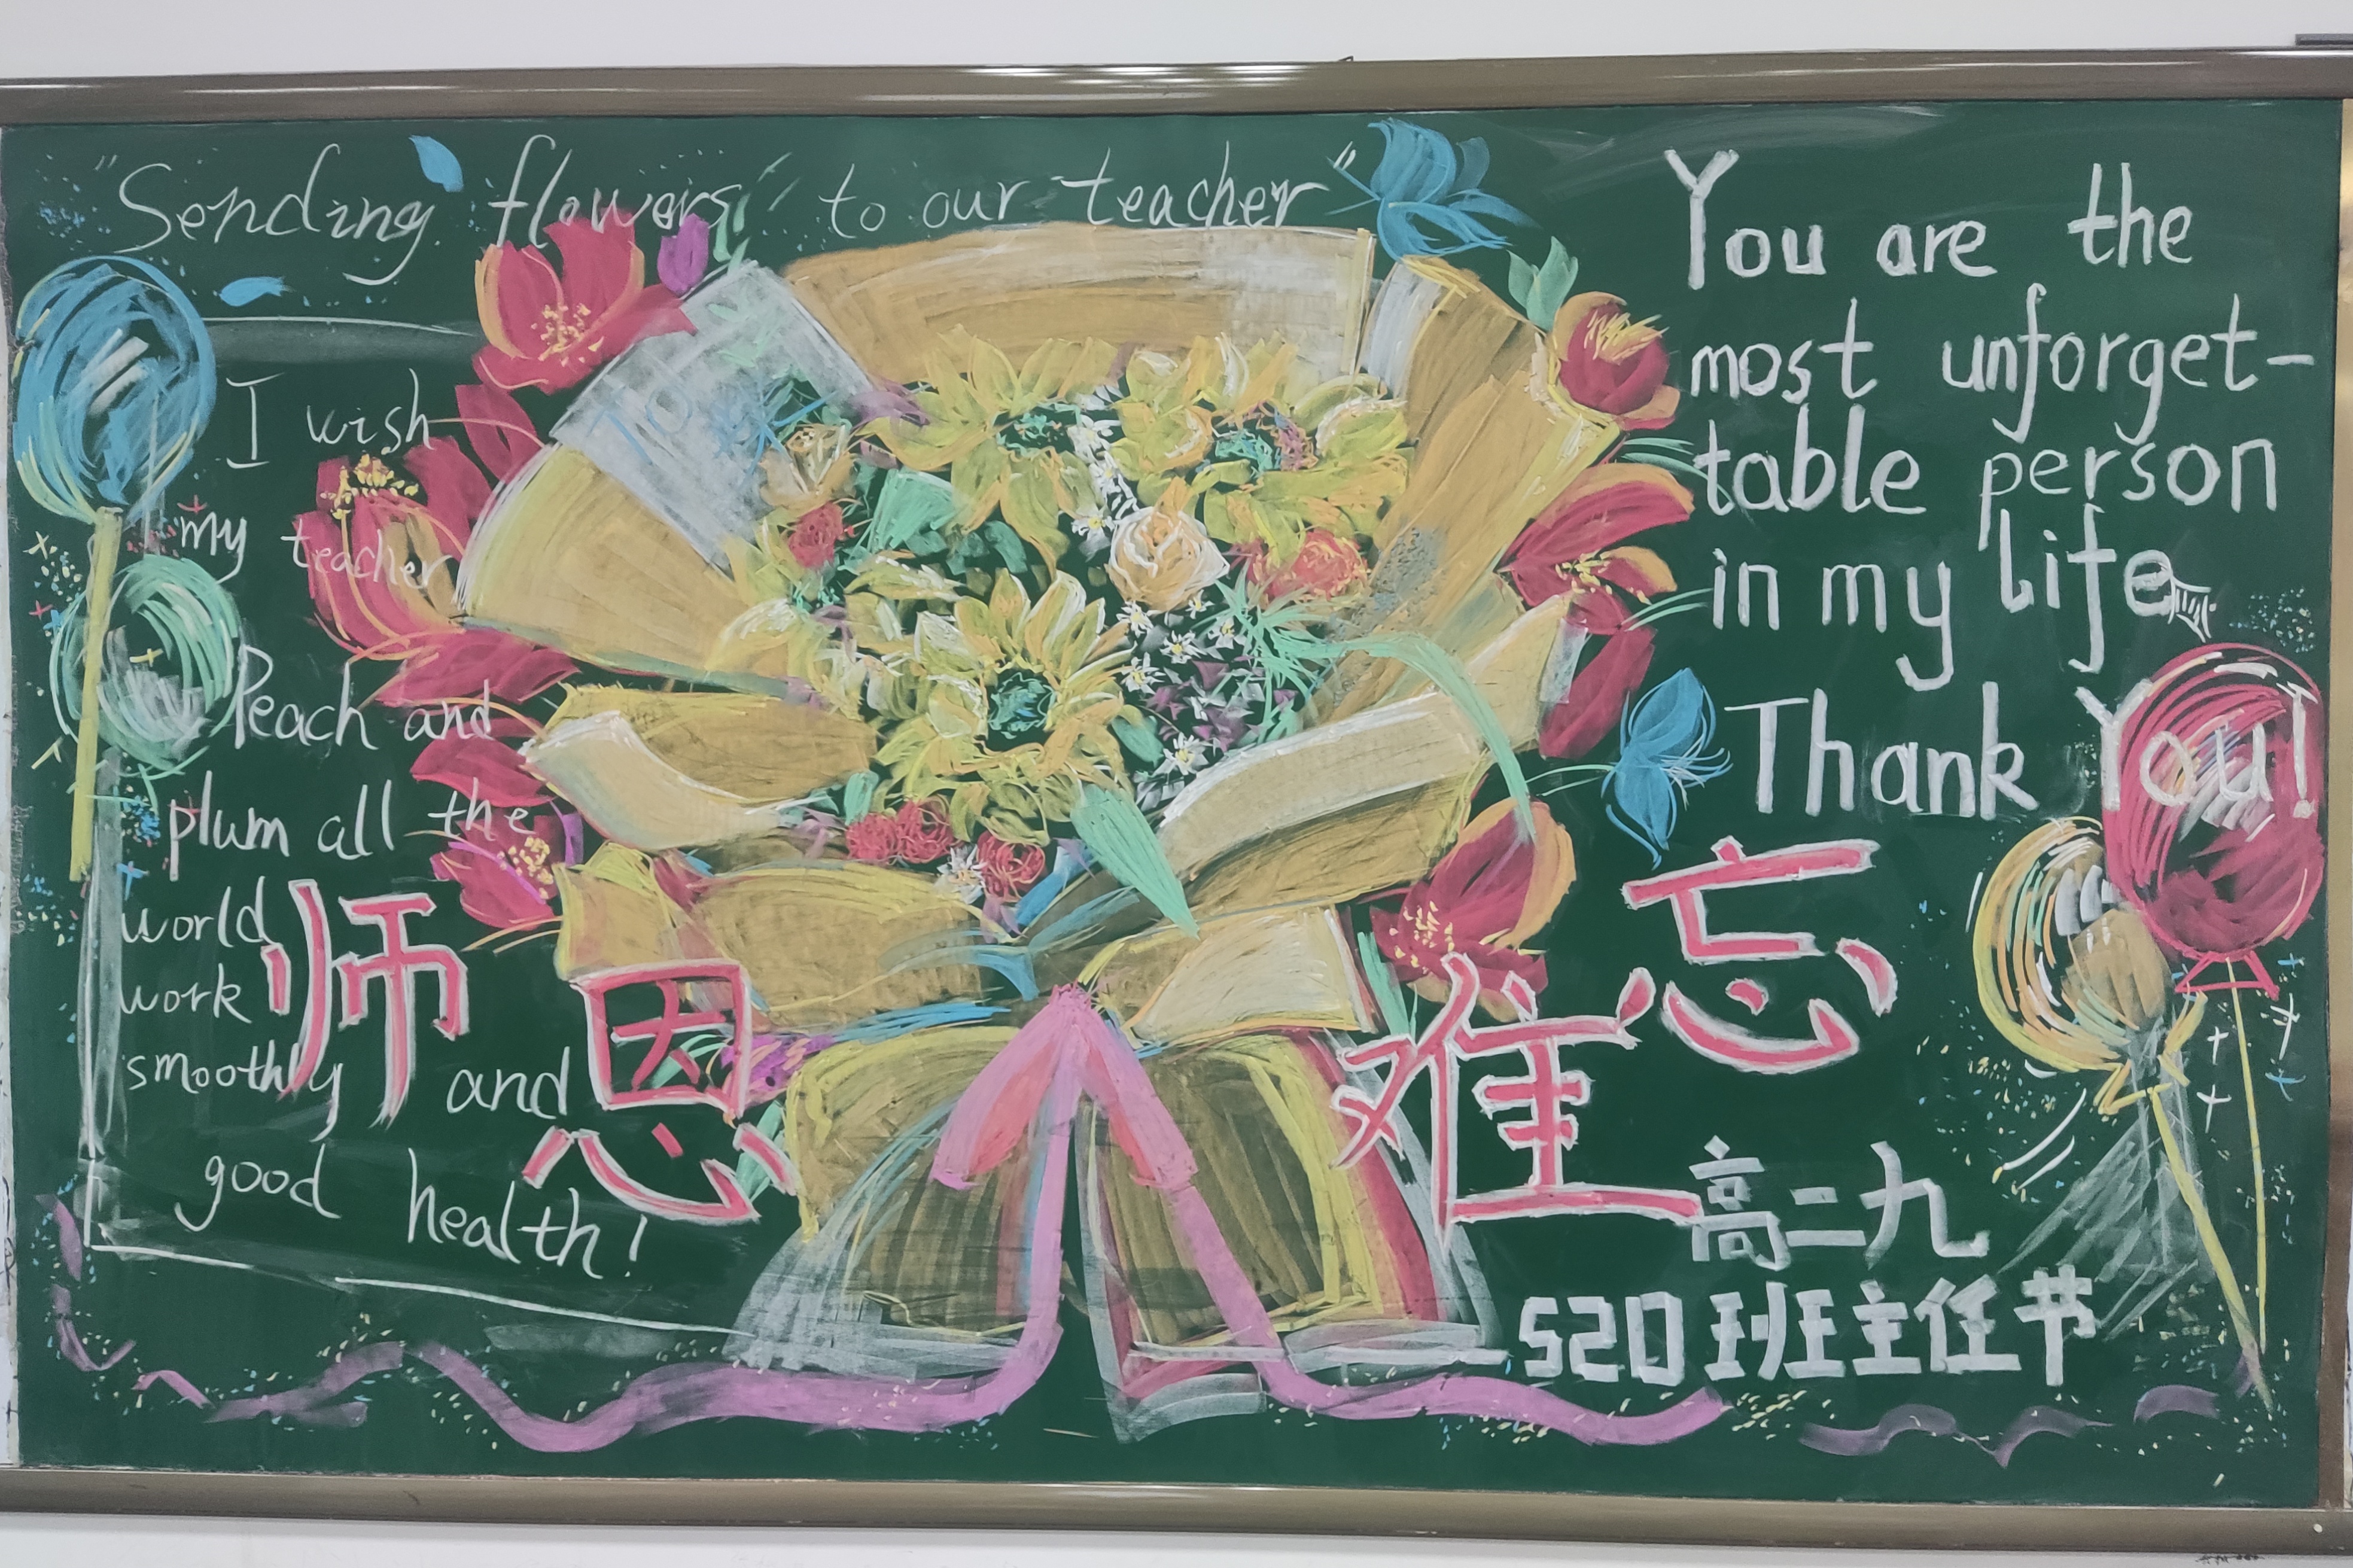 "Sending flowers" to our teacher"
I wish
my teacher
Peach and
plum all the
world
work
smoothly and
good health!
You are the
most unforget-
table person
in my life
Thank You!
师恩难忘
高二九
520班主任节